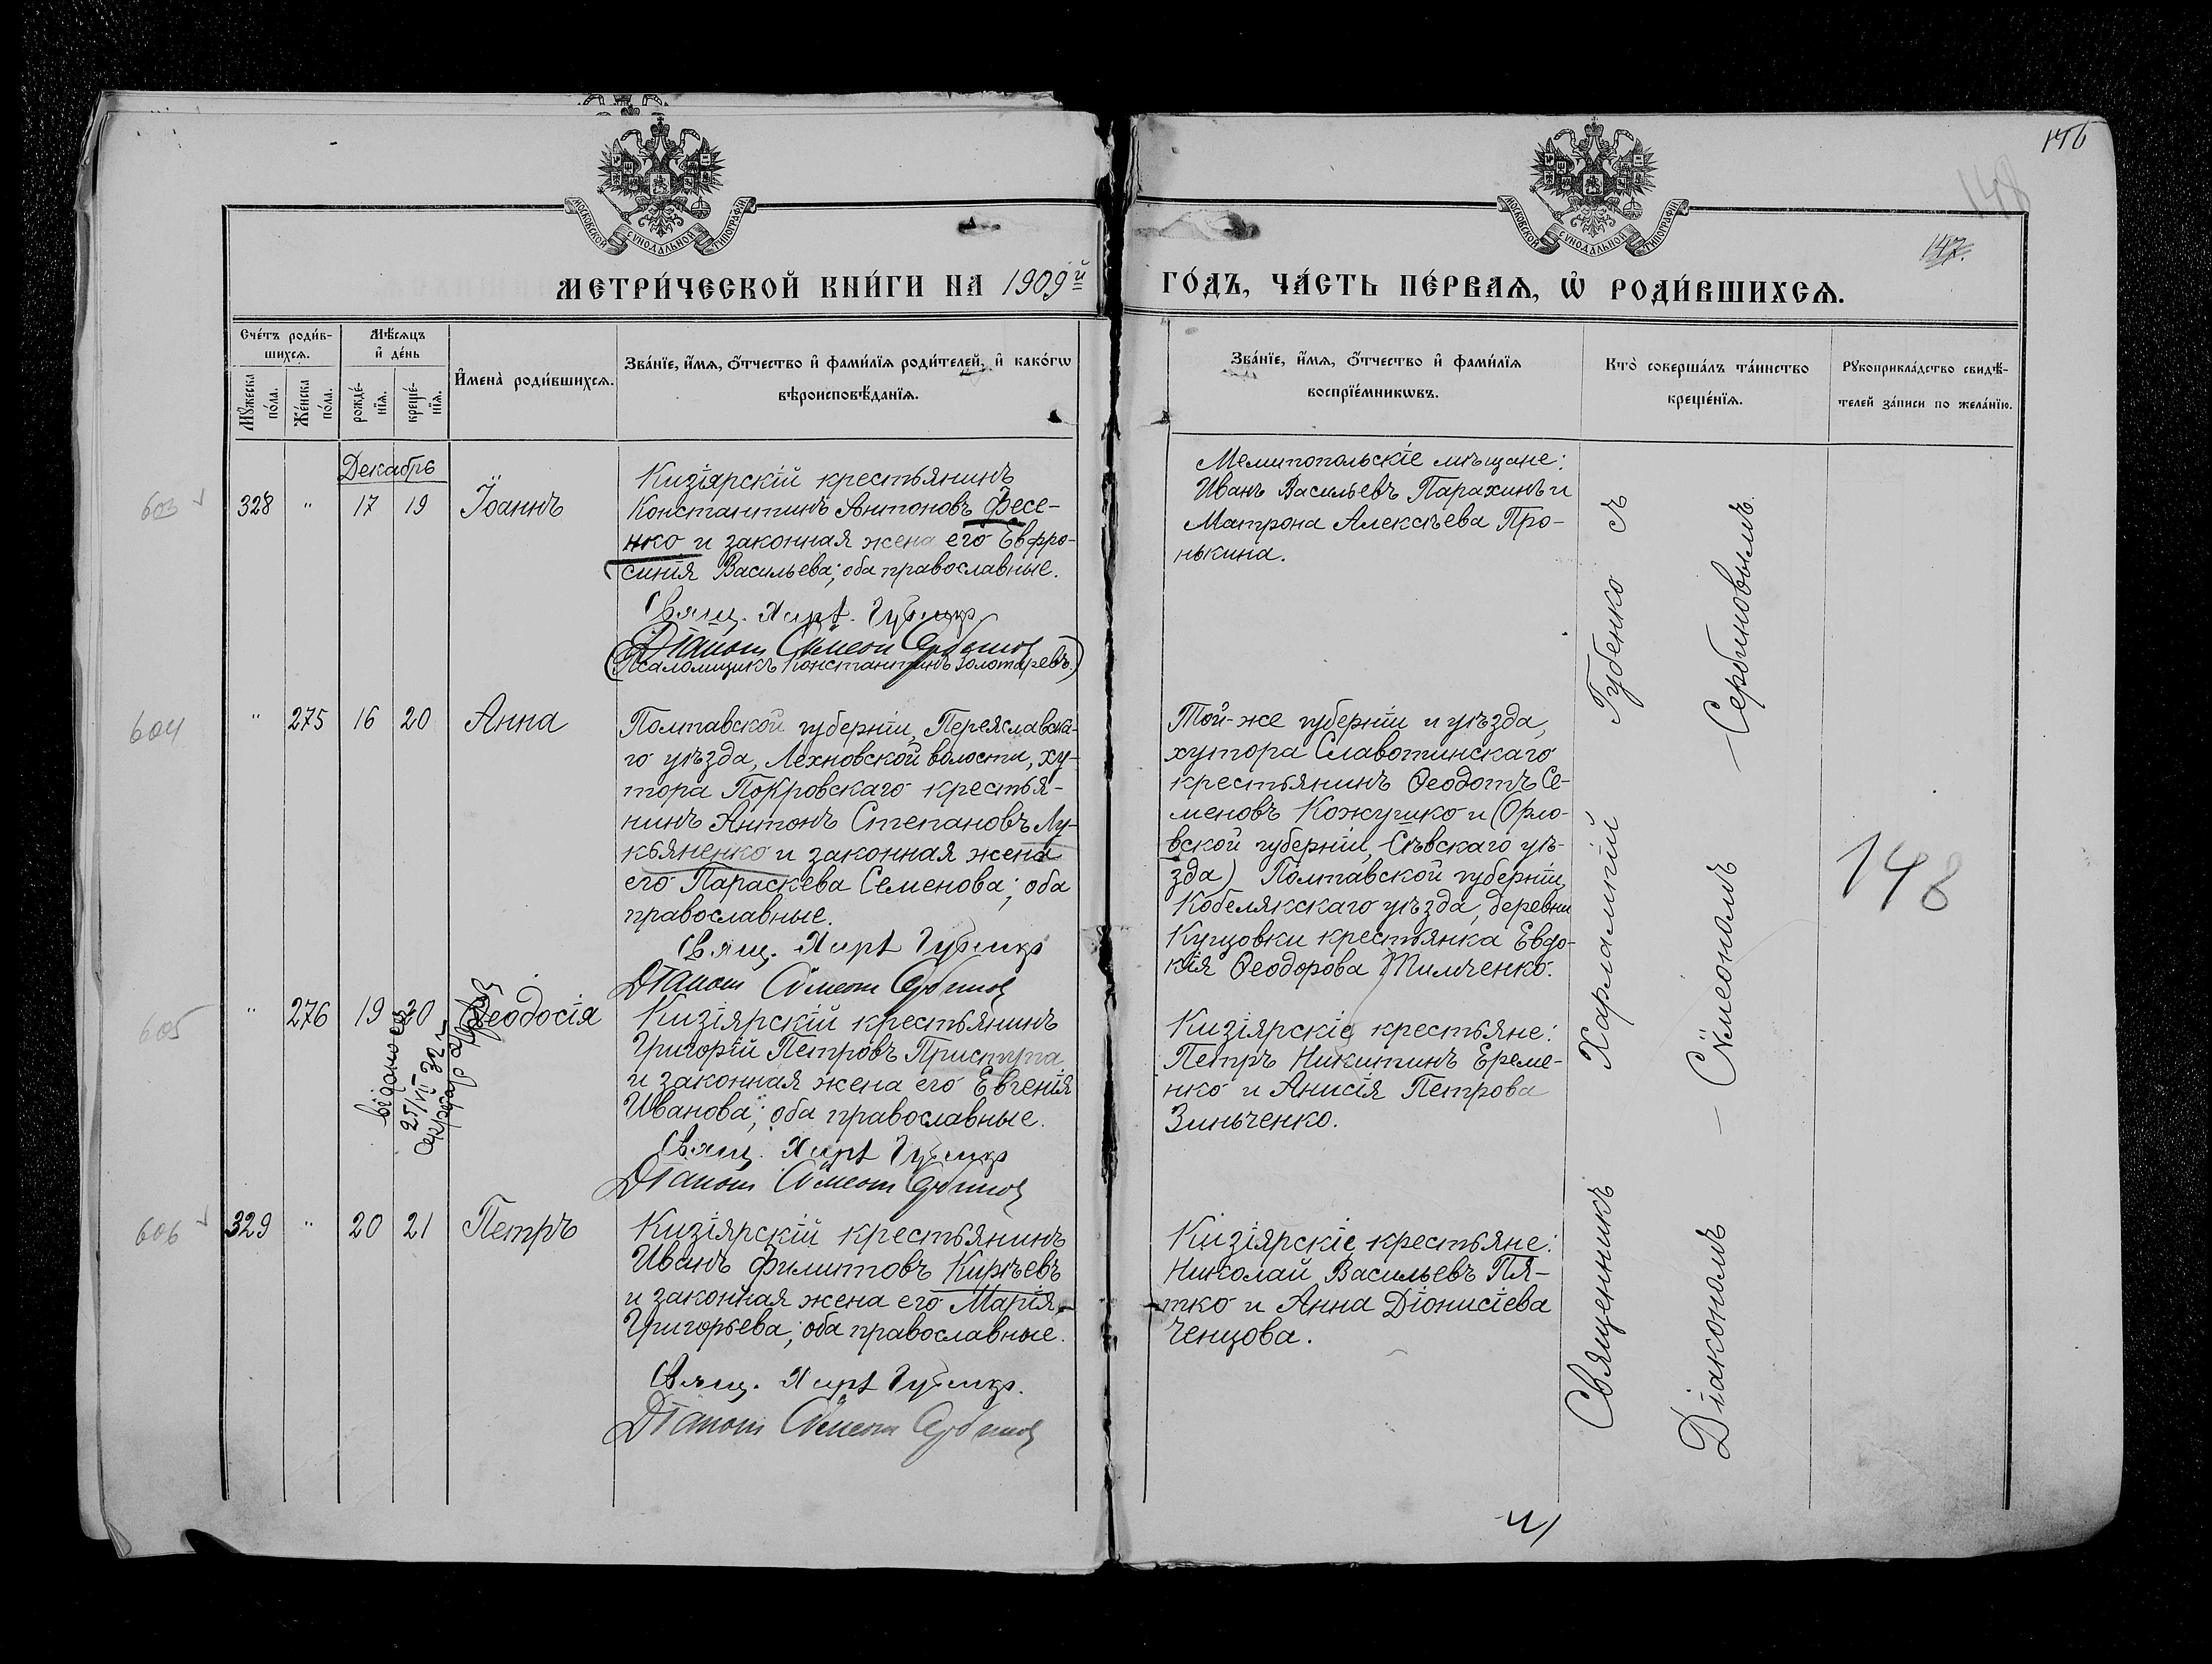 146
148
147.
МОСКОВСКОЙ СѴНОДАЛЬНОЙ ТИПОГРАФІИ
МОСКОВСКОЙ СѴНОДАЛЬНОЙ ТИПОГРАФІИ
МЕТРИ́ЧЕСКОЙ КНИ́ГИ НА 1909й
ГО́ДЪ, ЧА́СТЬ ПЕ́РВАѦ, Ѡ҆ РОДИ́ВШИХСѦ.
Сче́тъ роди́в-
шихсѧ.
Мѣ́сѧцъ
и҆ де́нь
Мꙋ́жеска
по́ла.
Же́нска
по́ла.
рожде́-
нїѧ.
креще́-
нїѧ.
И҆мена̀ роди́вшихсѧ.
Зва́нїе, и҆́мѧ, ѻ҆́тчество и҆ фами́лїѧ роди́телей, и҆ како́гѡ
вѣроисповѣ́данїѧ.
Зва́нїе, и҆́мѧ, ѻ҆́тчество и҆ фами́лїѧ
воспрїе́мникѡвъ.
Кто̀ соверша́лъ та́инство
креще́нїѧ.
Рꙋкоприкла́дство свидѣ́-
телей за́писи по жела́нїю.
Декабрь
603 328 " 17 19 Іоаннъ
Кизіярскій крестьянинъ
Константинъ Антоновъ Фесе-
нко и законная жена его Евфро-
синія Васильева; оба православные.
Свящ. Харл. Губенко
Діаконъ Сѵмеонъ Сербиновъ
(Псаломщикъ Константинъ Золотаревъ.)
Мелитопольскіе мѣщане:
Иванъ Васильевъ Парахинъ и
Матрона Алексѣева Про-
нькина.
604 " 275 16 20 Анна
Полтавской губерніи, Переяславска-
го уѣзда, Лехновской волости, ху-
тора Покровскаго крестья-
нинъ Антонъ Степановъ Лу-
кьяненко и законная жена
его Параскева Семенова; оба
православные.
Свящ. Харл Губенко
Діаконъ Сѵмеонъ Сербиновъ
Той-же губерніи и уѣзда,
хутора Славотинскаго
крестьянинъ Ѳеодотъ Се-
меновъ Кожушко и (Орло-
вской губерніи, Сѣвскаго уѣ-
зда) Полтавской губерніи,
Кобелякскаго уѣзда, деревни
Купцовки крестьянка Евдо-
кія Ѳеодорова Тимченко.
605 " 276 19 20 Ѳеодосія
видано
25/VII
Кизіярскій крестьянинъ
Григорій Петровъ Приступа
и законная жена его Евгенія
Иванова; оба православные.
Свящ. Харл Губенко
Діаконъ Сѵмеонъ Сербиновъ
Кизіярскіе крестьяне:
Петръ Никитинъ Ереме-
нко и Анисія Петрова
Зиньченко.
606 329 " 20 21 Петръ
Кизіярскій крестьянинъ
Иванъ Филиповъ Кирѣевъ
и законная жена его Марія
Григорьева; оба православные.
Свящ. Харл Губенко.
Діаконъ Сѵмеонъ Сербиновъ
Кизіярскіе крестьяне:
Николай Васильевъ Пя-
тко и Анна Діонисіева
Ченцова.
Священникъ Харлампій Губенко съ
Діакономъ – Сѵмеономъ – Сербиновымъ.
148